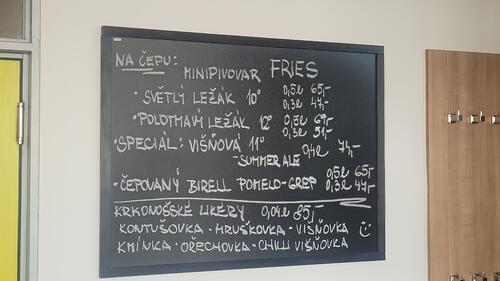 NA ČEPU:
MINIPIVOVAR FRIES
• SVĚTLÝ LEŽÁK 10° 0,5l 65,-
0,3l 47,-
• POLOTMAVÝ LEŽÁK 12° 0,5l 69,-
0,3l 51,-
• SPECIÁL: VIŠŇOVÁ 11° 0,4l 74,-
-SUMMER ALE
• ČEPOVANÝ BIRELL POMELO-GREP 0,5l 65,-
0,3l 47,-
KRKONOŠSKÉ LIKÉRY 0,04l 85,-
KONTUŠOVKA • HRUŠKOVKA • VIŠŇOVKA
KMÍNKA • OŘECHOVKA • CHILLI VIŠŇOVKA